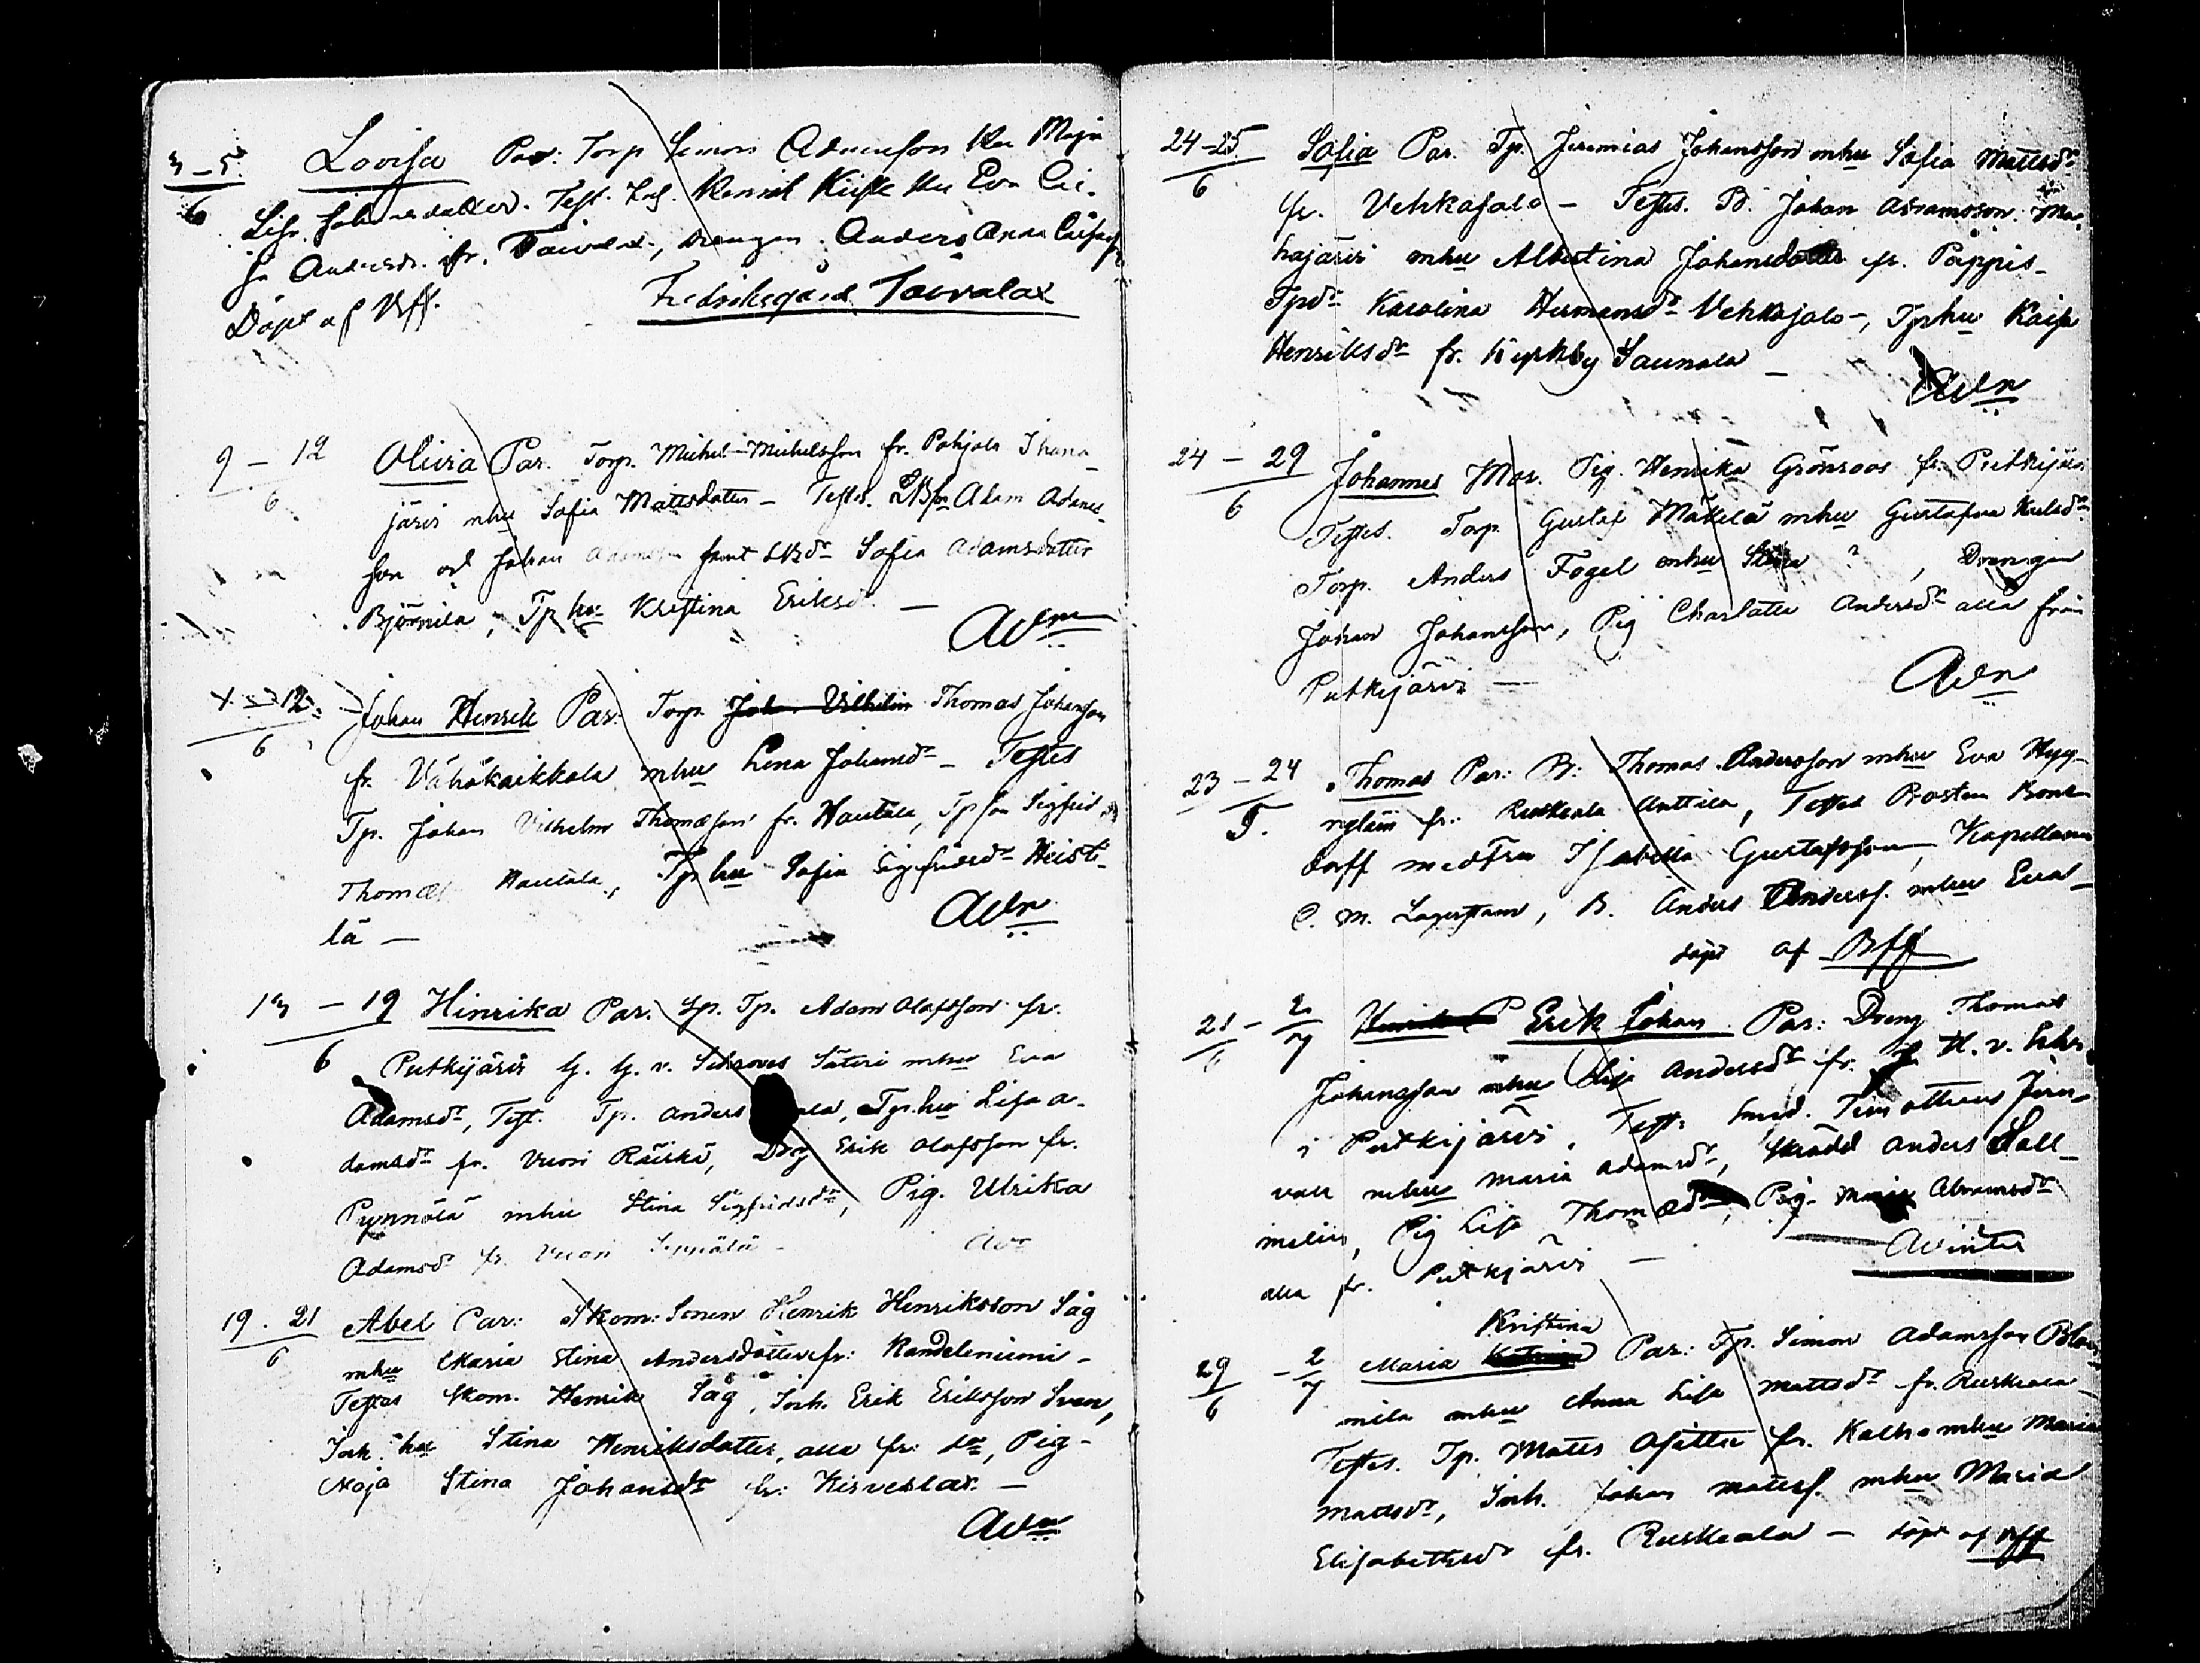 3-5/6 Lovisa Par: Torp Simon Adamsson hu Maja
Lisa Johansdotter. Test. Henrik hu Eva Cai-
sa Andersdr. fr. Taivalax, drengen Anders Anna Caisa
Döpt af Bff. Fredriksgård Taivalax
9-12/6 Olivia Par. Torp. Michel Michelsson fr. Pohjola Ihana-
järvi mhu Sofia Mattsdotter - Testes. Adam Adams-
son och Johan samt Sofia Adamsdotter
Björnila, Tp hu Kristina Eriksdr. -
Avn
12/6 Johan Henrik Par: Torp. Joh. Vilhelm Thomas Johansson
fr. Vähäkaikkala mhu Lena Johansdr - Testes
Tp. Johan Vilhelm Thomasson fr. Hautala, Tpson Sigfrid
Thomass Hautala, Tp hu Sofia Sigfridsdr Heist-
lä - Avn
13-19/6 Hinrika Par. Tp. Adam Olafsson fr.
Putkijärvi G. G. v. Säteri mhu Eva
Adamsdr, Test. Tp. Anders Tp. hu Lisa A-
damsdr fr. Vuori Räiskä, Drg Erik Olafsson fr.
Pynnölä mhu Stina Sigfridsdr, Pig. Ulrika
Adamsdr fr. Vuori Seppälä - Avn
19. 21/6 Abel Par: Skom: Sonen Henrik Henriksson Såg
mhu Maria Stina Andersdotter fr: Kandelniemi -
Testes Skom. Henrik Såg, Inh. Erik Eriksson Sven,
Inh. hu Stina Henriksdotter, alla fr: do, Pig-
Maja Stina Johansdr fr: Hirveslax. -
Avn
24-25/6 Sofia Par. Tp. Jeremias Johansson mhu Sofia Mattsdr
fr. Vehkajalo - Testes. B. Johan Abramsson Ma-
hajärvi mhu Albertina Johansdotter fr. Pappis-
Tpdr Karolina Hermansdr Vehkajalo -, Tp hu Kaisa
Henriksdr fr. Kyrkby Saunala -
Avn
24-29/6 Johannes Mor. Pig. Henrika Grönroos fr. Putkijärvi
Testes. Torp Gustaf Mäkelä mhu Gustafva
Torp. Anders Fogel mhu Stina ?, Drengen
Johan Johansson, Pig Charlotta Andersdr alla från
Putkijärvi - Avn
23-24/5. Thomas Par: B: Thomas Andersson mhu Eva Hyy-
ryläin fr: Ruskeala Anttila, Testes Prosten Bons-
dorff med Fru Isabella Gustafsson, Kapellanen
C. M. Lagerstam, B. Anders Anderss. mhu Eva -
döpt af Bff
21/6-2/7 Henrik Erik Johan Par: Dreng Thomas
Johansson mhu Lisa Andersdr fr. H. v.
i Putkijärvi. Test. Smed. Timotheus Jern-
vall mhu Maria Adamsdr, Skrädd Anders Sall-
melin, Pig Lisa Thomædr, Pig. Maja Abramsdr
alla fr. Putkijärvi - Avinter
29/6-2/7 Maria Katrina Kristina Par: Tp. Simon Adamsson Björ-
nila mhu Anna Lisa Mattsdr fr. Ruskeala -
Testes. Tp. Matts fr. Kalho mhu Maria
Mattsdr, Inh. Johan Matss. mhu Maria
Elisabethsdr fr. Ruskeala - döpt af Bff